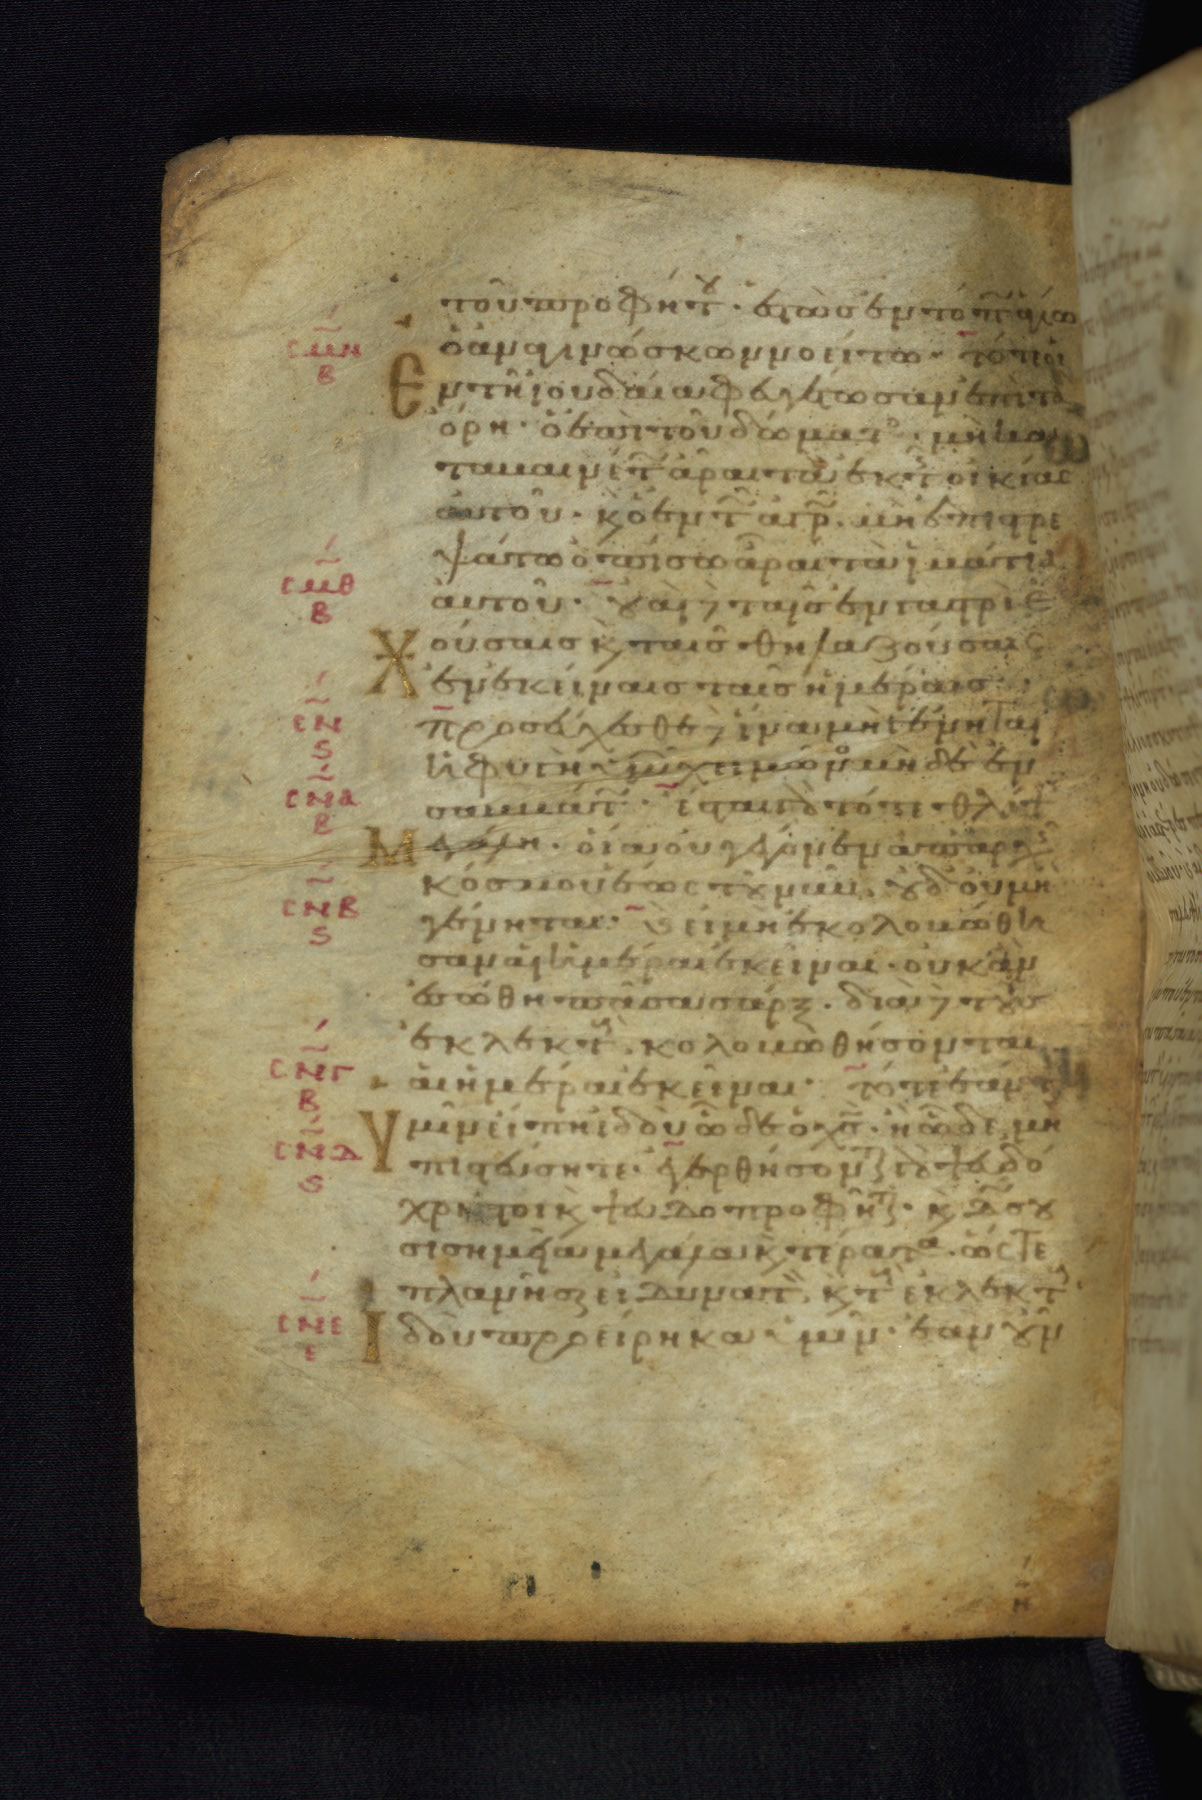 τοῦ προφήτου · ἑστὼς ἐν τόπῳ ἁγίω
ὁ ἀναγινώσκων νοείτω · τότε οἱ
ἐν τῆ ἰουδαία φευγέτωσαν ἐπὶ τὰ
ὄρη · ὁ ἐπὶ τοῦ δώματος · μὴ κα
ταβαινέτω ἆραι τὰ ἐκ τῆς οἰκίας
αὐτοῦ · κ ὁ ἐν τῶ ἀγρῶ · μὴ ἐπιστρε
ψάτω ὀπίσω ἆραι τὰ ἱμάτια
αὐτοῦ · οὐαὶ δὲ ταῖς ἐν γαστρὶ ἐ
χούσαις κ ταῖς θηλαζούσαις
ἐν ἐκείναις ταῖς ἡμέραις ·
προσεύχεσθε δὲ ἵνα μὴ γένηται
ἡ φυγὴ ὑμῶν χειμῶνος μηδὲ ἐν
σαββάτω · ἔσται γὰρ τότε θλίψις
μεγάλη · οἵα οὐ γέγονεν ἀπ' ἀρχῆς
κόσμου ἕως τοῦ νῦν · οὐδ' οὐ μὴ
γένηται · κ εἰ μὴ ἐκολοβώθη
σαν αἱ ἡμέραι ἐκεῖναι · οὐκ ἂν
ἐσώθη πᾶσα σάρξ · διὰ δὲ τοὺς
ἐκλεκτοὺς · κολοβωθήσονται
αἱ ἡμέραι ἐκεῖναι · τότε ἐάν τις
ὑμῖν εἴπη ἰδοὺ ὧδε ὁ χς · ἢ ὧδε μὴ
πιστεύσητε · ἐγερθήσονται γὰρ ψευδό
χριστοι κ ψευδοπροφῆται · κ δώσου
σι σημεῖα μεγάλα κ τέρατα · ὥστε
πλανῆσαι εἰ δυνατὸν κ τοὺς ἐκλεκτούς ·
ἰδοὺ προείρηκα ὑμῖν · ἐὰν οὖν
CMH
B
CMΘ
B
CN
S
CNA
B
CNB
S
CNΓ
B
CNΔ
S
CNE